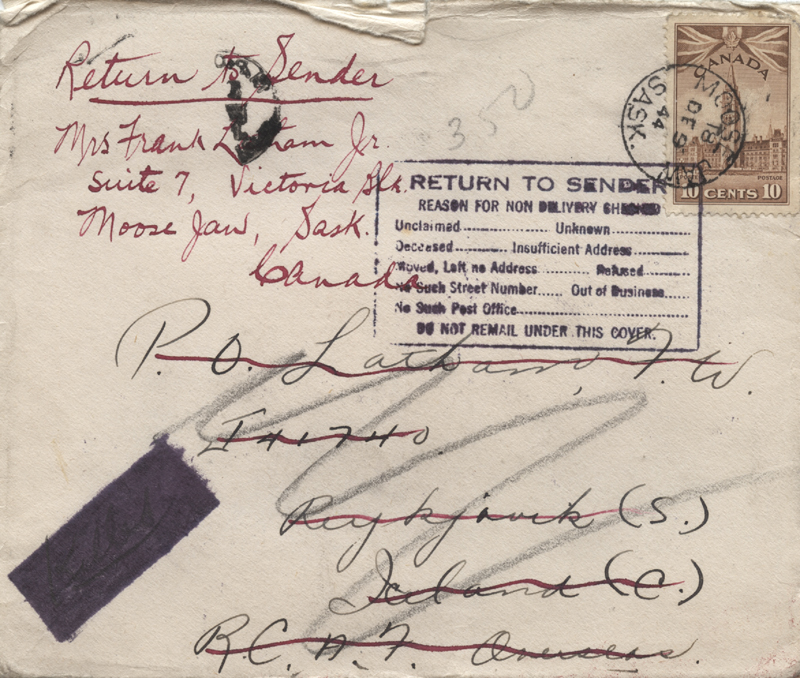 Return to Sender
Mrs Frank Latham Jr.
Suite 7, Victoria Blk.
Moose Jaw, Sask.
Canada
350
CANADA
POSTAGE
10 CENTS 10
MOOSE JAW
18
DE 9
44
SASK.
RETURN TO SENDER
REASON FOR NON DELIVERY CHECKED
Unclaimed............ Unknown............
Deceased............ Insufficient Address............
Moved, Left no Address............ Refused............
No Such Street Number...... Out of Business......
No Such Post Office............
DO NOT REMAIL UNDER THIS COVER.
P. O. Latham, F. W.
Reykjavik (S.)
Iceland (C.)
R. C. A. F. Overseas.